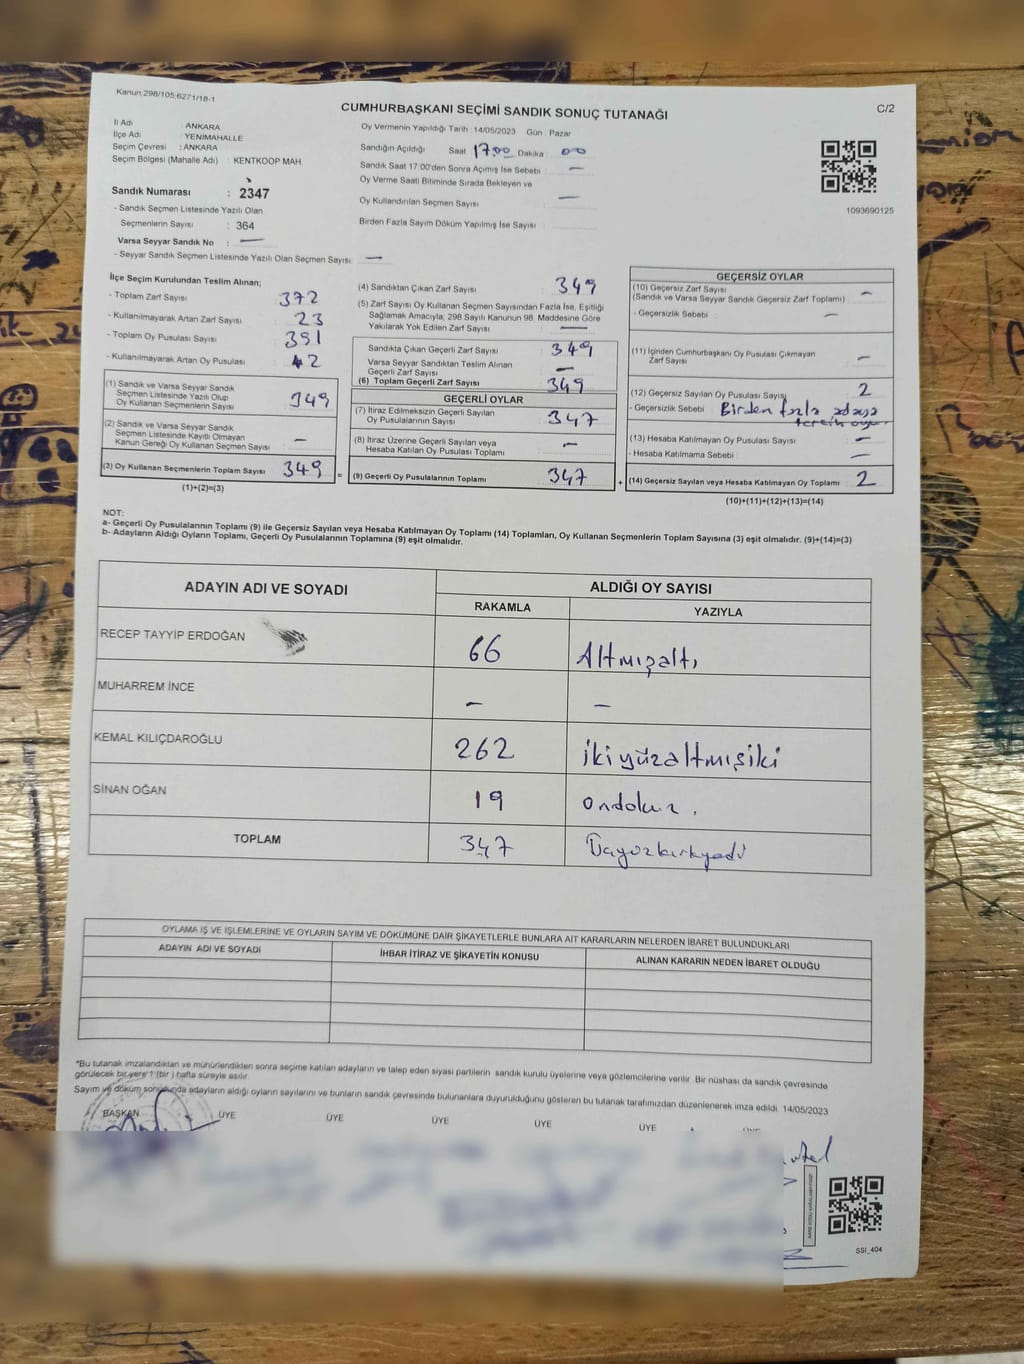 Kanun:298/105,6271/18-1
CUMHURBAŞKANI SEÇİMİ SANDIK SONUÇ TUTANAĞI
C/2
İl Adı : ANKARA
İlçe Adı YENİMAHALLE
Seçim Çevresi : ANKARA
Seçim Bölgesi (Mahalle Adı) : KENTKOOP MAH.
Sandık Numarası : 2347
- Sandık Seçmen Listesinde Yazılı Olan
Seçmenlerin Sayısı : 364
Varsa Seyyar Sandık No : —
- Seyyar Sandık Seçmen Listesinde Yazılı Olan Seçmen Sayısı : —
Oy Vermenin Yapıldığı Tarih : 14/05/2023 Gün : Pazar
Sandığın Açıldığı Saat 17.00 Dakika : 00
Sandık Saat 17.00'den Sonra Açımış İse Sebebi : —
Oy Verme Saati Bitiminde Sırada Bekleyen ve
Oy Kullandırılan Seçmen Sayısı : —
Birden Fazla Sayım Döküm Yapılmış İse Sayısı :
1093690125
İlçe Seçim Kurulundan Teslim Alınan;
- Toplam Zarf Sayısı 372
- Kullanılmayarak Artan Zarf Sayısı : 23
- Toplam Oy Pusulası Sayısı : 391
- Kullanılmayarak Artan Oy Pusulası : 42
(1) Sandık ve Varsa Seyyar Sandık
Seçmen Listesinde Yazılı Olup
Oy Kullanan Seçmenlerin Sayısı : 349
(2) Sandık ve Varsa Seyyar Sandık
Seçmen Listesinde Kayıtlı Olmayan
Kanun Gereği Oy Kullanan Seçmen Sayısı : —
(3) Oy Kullanan Seçmenlerin Toplam Sayısı : 349
(1)+(2)=(3)
(4) Sandıktan Çıkan Zarf Sayısı : 349
(5) Zarf Sayısı Oy Kullanan Seçmen Sayısından Fazla İse, Eşitliği
Sağlamak Amacıyla, 298 Sayılı Kanunun 98. Maddesine Göre
Yakılarak Yok Edilen Zarf Sayısı : —
Sandıkta Çıkan Geçerli Zarf Sayısı : 349
Varsa Seyyar Sandıktan Teslim Alınan
Geçerli Zarf Sayısı : —
(6) Toplam Geçerli Zarf Sayısı : 349
GEÇERLİ OYLAR
(7) İtiraz Edilmeksizin Geçerli Sayılan
Oy Pusulalarının Sayısı : 347
(8) İtiraz Üzerine Geçerli Sayılan veya
Hesaba Katılan Oy Pusulası Toplamı : —
=
(9) Geçerli Oy Pusulalarının Toplamı : 347
+
GEÇERSİZ OYLAR
(10) Geçersiz Zarf Sayısı
(Sandık ve Varsa Seyyar Sandık Geçersiz Zarf Toplamı) : —
- Geçersizlik Sebebi : —
(11) İçinden Cumhurbaşkanı Oy Pusulası Çıkmayan
Zarf Sayısı : —
(12) Geçersiz Sayılan Oy Pusulası Sayısı : 2
- Geçersizlik Sebebi : Birden fazla adaya
tercih oyu
(13) Hesaba Katılmayan Oy Pusulası Sayısı : —
- Hesaba Katılmama Sebebi : —
(14) Geçersiz Sayılan veya Hesaba Katılmayan Oy Toplamı : 2
(10)+(11)+(12)+(13)=(14)
NOT:
a- Geçerli Oy Pusulalarının Toplamı (9) ile Geçersiz Sayılan veya Hesaba Katılmayan Oy Toplamı (14) Toplamları, Oy Kullanan Seçmenlerin Toplam Sayısına (3) eşit olmalıdır. (9)+(14)=(3)
b- Adayların Aldığı Oyların Toplamı, Geçerli Oy Pusulalarının Toplamına (9) eşit olmalıdır.
ADAYIN ADI VE SOYADI
ALDIĞI OY SAYISI
RAKAMLA YAZIYLA
RECEP TAYYİP ERDOĞAN 66 Altmışaltı
MUHARREM İNCE — —
KEMAL KILIÇDAROĞLU 262 ikiyüzaltmışiki
SİNAN OĞAN 19 ondokuz.
TOPLAM 347 Üçyüzkırkyedi
OYLAMA İŞ VE İŞLEMLERİNE VE OYLARIN SAYIM VE DÖKÜMÜNE DAİR ŞİKAYETLERLE BUNLARA AİT KARARLARIN NELERDEN İBARET BULUNDUKLARI
ADAYIN ADI VE SOYADI İHBAR İTİRAZ VE ŞİKAYETİN KONUSU ALINAN KARARIN NEDEN İBARET OLDUĞU
*Bu tutanak imzalandıktan ve mühürlendikten sonra seçime katılan adayların ve talep eden siyasi partilerin sandık kurulu üyelerine veya gözlemcilerine verilir. Bir nüshası da sandık çevresinde
görülecek bir yere 1 (bir ) hafta süreyle asılır.
Sayım ve döküm sonucunda adayların aldığı oyların sayılarını ve bunların sandık çevresinde bulunanlara duyurulduğunu gösteren bu tutanak tarafımızdan düzenlenerek imza edildi. 14/05/2023
BAŞKAN ÜYE ÜYE ÜYE ÜYE ÜYE
SSI_404